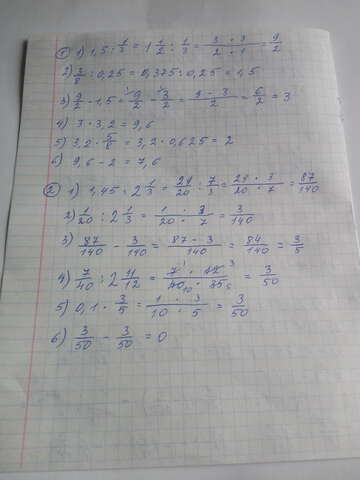 ① 1) 1,5 : 1/3 = 1 1/2 : 1/3 = 3 · 3 / 2 · 1 = 9/2
2) 3/8 : 0,25 = 0,375 : 0,25 = 1,5
3) 9/2 - 1,5 = 9/2 - 3/2 = 9 - 3 / 2 = 6/2 = 3
4) 3 · 3,2 = 9,6
5) 3,2 · 5/8 = 3,2 · 0,625 = 2
6) 9,6 - 2 = 7,6
② 1) 1,45 : 2 1/3 = 29/20 : 7/3 = 29 · 3 / 20 · 7 = 87/140
2) 1/20 : 2 1/3 = 1 · 3 / 20 · 7 = 3/140
3) 87/140 - 3/140 = 87 - 3 / 140 = 84/140 = 3/5
4) 7/40 : 2 11/12 = 7 · 12 / 40 · 35 = 3/50
5) 0,1 · 3/5 = 1 · 3 / 10 · 5 = 3/50
6) 3/50 - 3/50 = 0